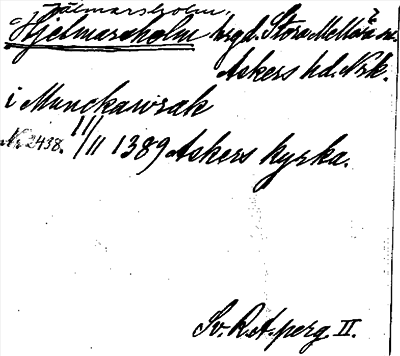 Hjälmarsholm,
Hjelmarsholm hrgd. Stora Mellösa sn.
Askers hd. Nrk.
i Munckawrak
Nr 2438. 11/11 1389 Askers kyrka.
Sv. R.A. perg. II.